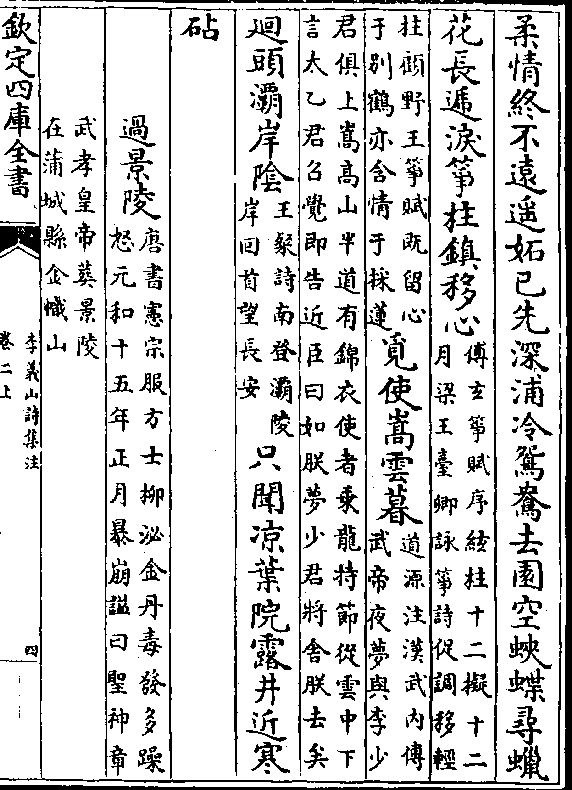 柔情終不遠遥妬已先深浦冷鴛鴦去園空蛺蝶尋蠟
花長逓淚箏柱鎮移心傅玄箏賦序絃柱十二擬十二
月梁王臺卿詠箏詩促調移輕
柱顧野王箏賦既留心
于别鶴亦含情于採蓮覓使嵩雲暮道源注漢武内傳
武帝夜夢與李少
君俱上嵩髙山半道有錦衣使者乗龍持節從雲中下
言太乙君召覺即告近臣曰如朕夢少君將舍朕去矣
迴頭灞岸陰王粲詩南登灞陵
岸回首望長安只聞凉葉院露井近寒
砧
過景陵唐書憲宗服方士柳泌金丹毒發多躁
怒元和十五年正月暴崩諡曰聖神章
武孝皇帝葬景陵
在蒲城縣金幟山
欽定四庫全書
李義山詩集注
卷二上
四